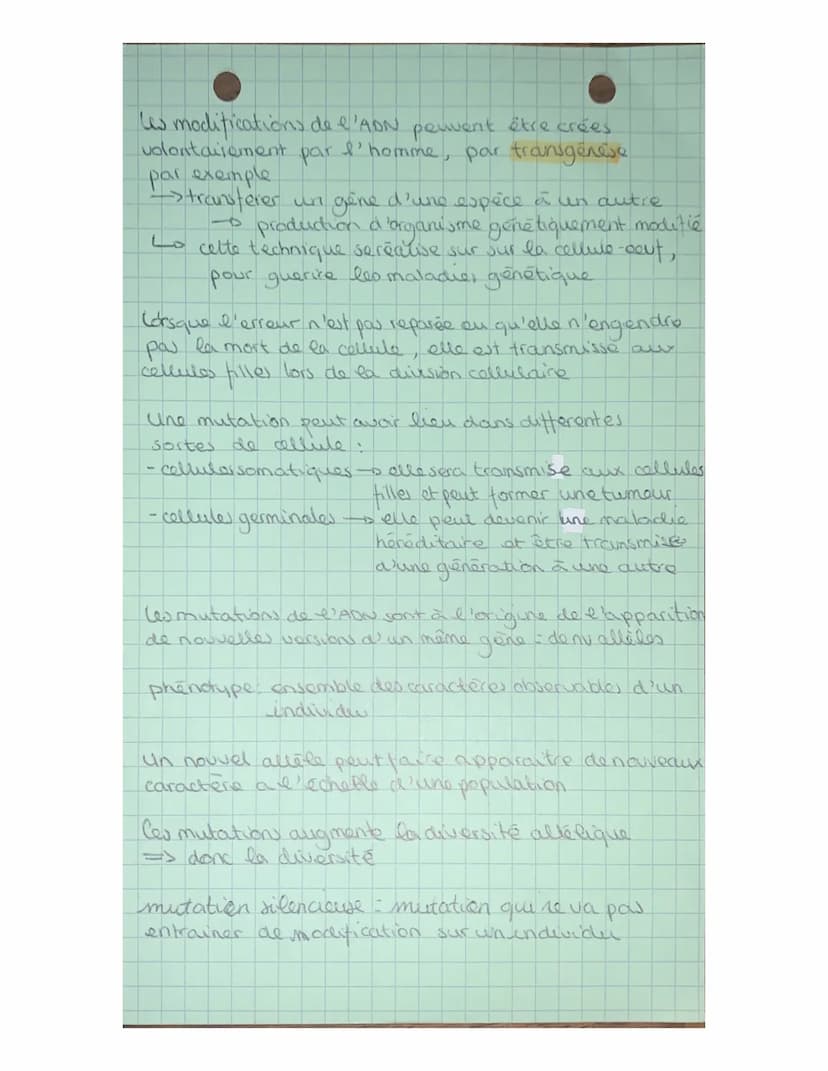 Les modifications de l'ADN peuvent être crées
volontairement par l'homme, par transgénèse
par exemple
→ transférer un gène d'une espèce à un autre
→ production d'organisme génétiquement modifié
↳ cette technique se réalise sur sur la cellule-oeuf,
pour guerire les maladies génétique
Lorsque l'erreur n'est pas reparée ou qu'elle n'engendre
pas la mort de la cellule, elle est transmisse aux
cellules filles lors de la division cellulaire
Une mutation peut avoir lieu dans differentes
sortes de cellule :
- cellules somatiques → elle sera transmise aux cellules
filles et peut former une tumeur
- cellules germinales → elle peut devenir une maladie
héréditaire et être transmise
d'une génération à une autre
Les mutations de l'ADN sont à l'origine de l'apparition
de nouvelles versions d'un même gène : de nv allèles
phénotype : ensemble des caractères observables d'un
individu
Un nouvel allèle peut faire apparaitre de nouveaux
caractère a l'échelle d'une population
Les mutations augmente la diversité allélique
=> donc la diversité
mutation silencieuse = mutation qui ne va pas
entrainer de modification sur un individu